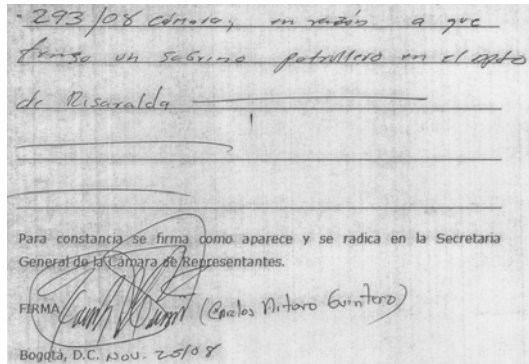 - 293/08 Cámara, en razón a que
tengo un sobrino patrullero en el Dpto
de Risaralda
Para constancia se firma como aparece y se radica en la Secretaria
General de la Cámara de Representantes.
FIRMA (Carlos Arturo Quintero)
Bogotá, D.C. Nov. 25/08